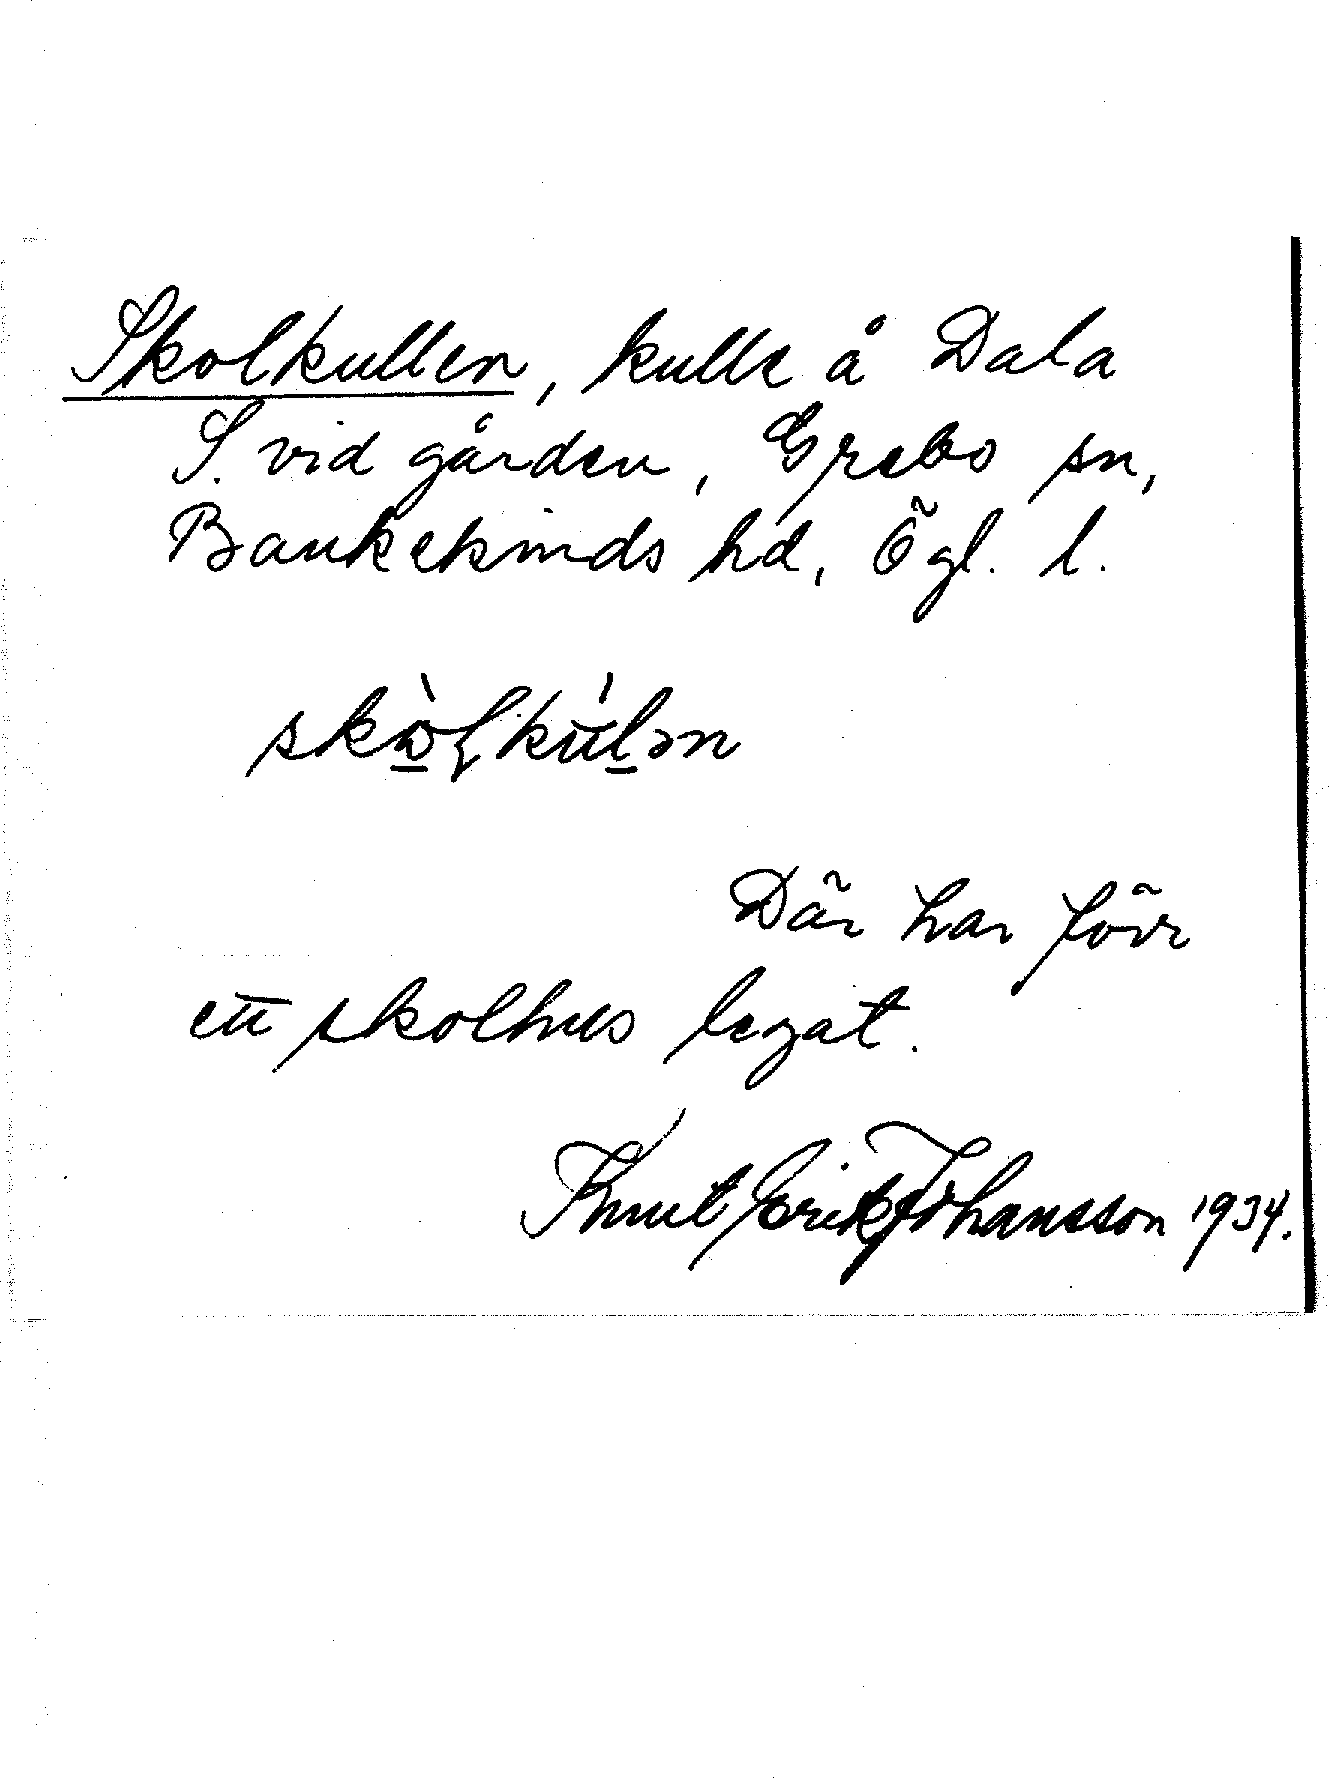 Skolkullen, kulle å Dala
S. vid gården, Grebo sn,
Bankekinds hd, Ögl. l.
skὼlkúlən
Där har förr
ett skolhus legat.
Knut Erik Johansson 1934.